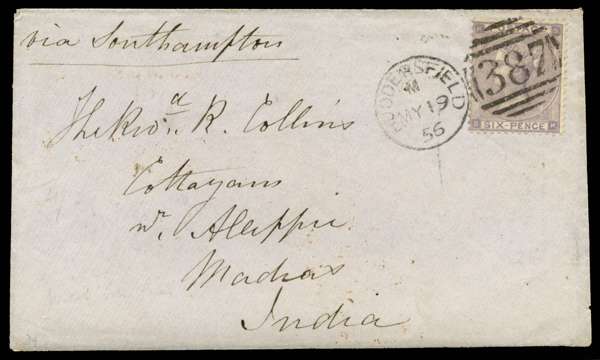 via Southampton
HUDDERSFIELD
M
MY 19
56
387
SIX-PENCE
The Revd. R. Collins
Cottayam
nr. Aleppie
Madras
India